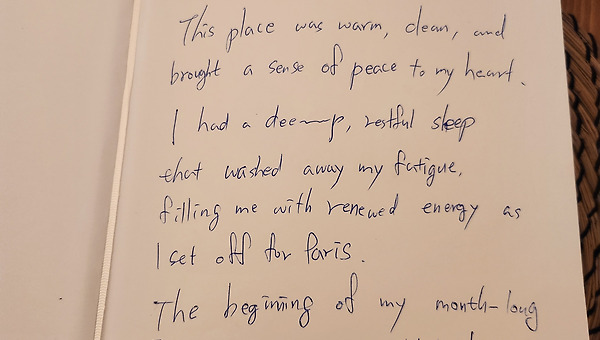 This place was warm, clean, and
brought a sense of peace to my heart.
I had a dee~~p, restful sleep
that washed away my fatigue,
filling me with renewed energy as
I set off for Paris.
The begining of my month-long